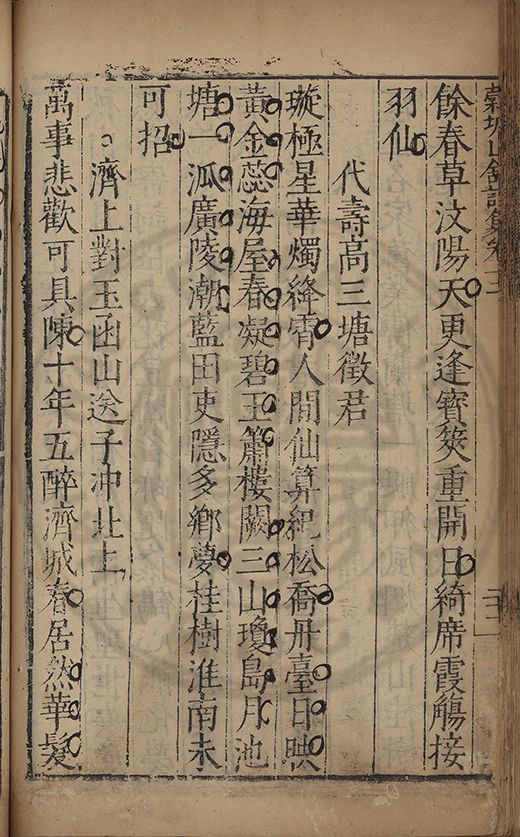 穀城山館詩集卷
餘春草汶陽天更逢寳筴重開日綺席霞觴接
羽仙
代壽高三塘徵君
璇極星華燭絳霄人間仙算紀松喬丹臺日映
黃金蕊海屋春凝碧玉簫樓闕三山瓊島月池
塘一泒廣陵潮藍田吏隱多鄉夢桂樹淮南未
可招
濟上對玉函山送子冲北上
萬事悲歡可具陳十年五醉濟城春居然華髮